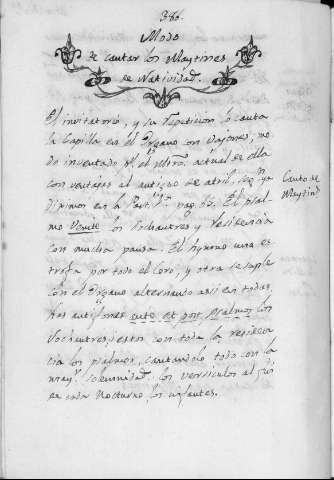 386.
Modo
de cantar los Maytines
de Natividad.
El invitatorio, y su repeticion lo canta
la Capilla en el Organo con vajones, mo
do inventado pr. el Mtro. actual de ella
con ventajas al antiguo de atril, seg.
diximos en la Part. pag. El psal-
mo Venite los Sochantres y residencia
con mucha pausa. El hymno una es
trofa por todo el Coro, y otra se suple
con el Organo alternando assi en todas.
Las antifonas ante et post psalmos los
Sochantres; estos con toda la residen
cia los psalmos, cantandolo todo con la
mayr. solemnidad. los versiculos al fin
de cada Nocturno los infantes.
Canto de
Maytines